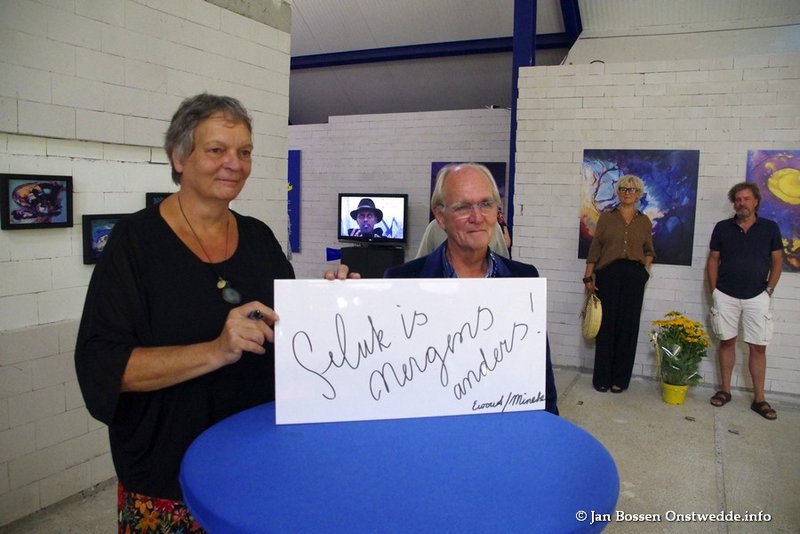 Geluk is
Nergens
anders!
Ewoud/Mineke
© Jan Bossen Onstwedde.info